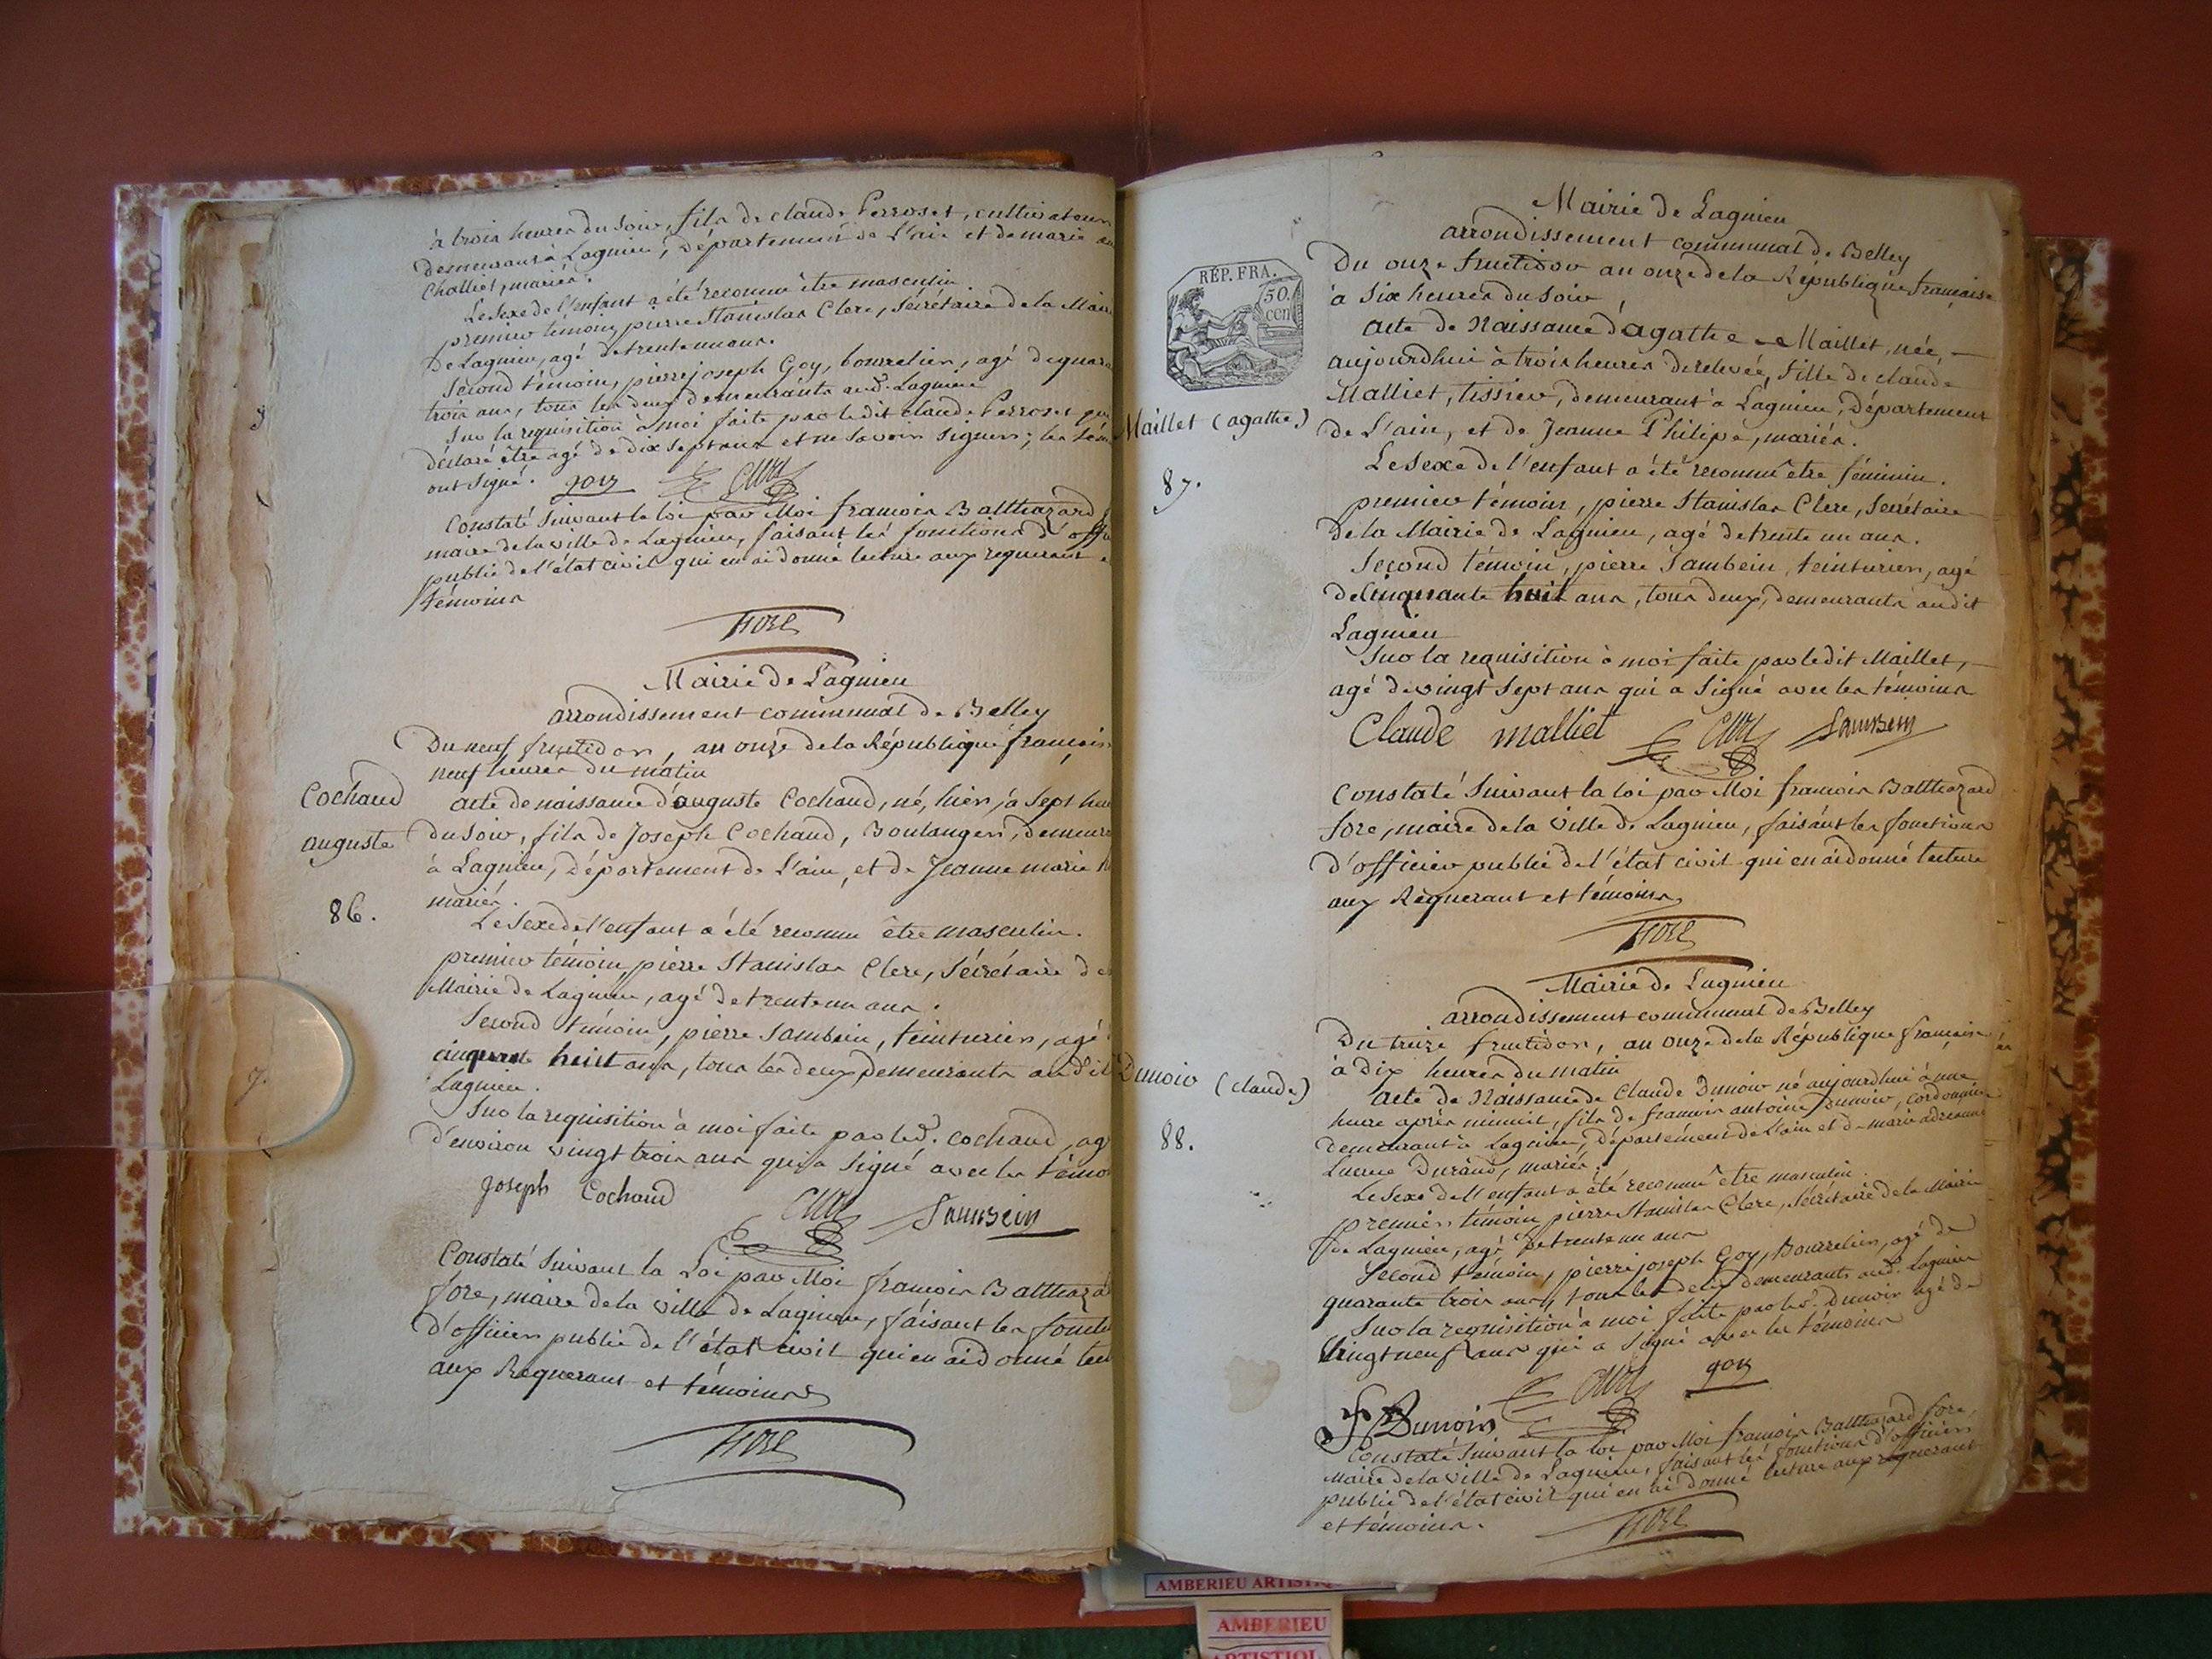 à trois heures du Soir, fils de claude Perroset, cultivateur
demeurant à Lagnieu, Département de L'ain et de marie
challiet, mariés.
Le Sexe de l'enfant a été reconnu être masculin
premier témoin, pierre Stanislas Clerc, Sécrétaire de la Mair
De Lagnieu, agé de trente un ans.
Second témoin, pierre joseph Goy, bourrelier, agé de quara
trois ans, tous les deux demeurants aud. Lagnieu
Sur la requisition à moi faite par ledit claude Perroset qui
déclaré être agé de dix sept ans et ne Savoir signer; les tém
ont signé. goy
Constaté Suivant la loi par Moi francois Balthazard
maire de la ville de Lagnieu, faisant les fonctions d'offi
public de l'état civil qui en ai donné lecture aux requerant
témoins
fore
Mairie de Lagnieu
arrondissement communal de Belley
Du neuf fructidor, an onze de la République françois
neuf heures du matin
Cochaud
auguste
86.
acte de naissance d'auguste Cochaud, né, hier, à Sept heu
du Soir, fils de Joseph Cochaud, Boulanger, demeura
à Lagnieu, Département de L'ain, et de Jeanne marie
mariés.
Le Sexe de l'enfant a été reconnu être masculin.
premier témoin, pierre Stanislas Clerc, Sécrétaire de
Mairie de Lagnieu, agé de trente un ans.
Second témoin, pierre Sambein, teinturier, agé
cinquante huit ans, tous les deux demeurants audit
Lagnieu.
Sur la requisition à moi faite par led. Cochaud, ag
d'environ vingt trois ans qui a Signé avec les témo
joseph Cochaud Clerc Sambein
Constaté Suivant la Loi par Moi françois Balthaza
fore, maire de la ville de Lagnieu, faisant les foncti
d'officier public de l'état civil qui en ai donné lec
aux Requerant et témoins
fore
RÉP. FRA.
50.
cen
Mairie de Lagnieu
arrondissement communal de Belley
Du onze fructidor an onze de la République française
à Six heures du Soir
Maillet (agathe)
87.
acte de Naissance d'agathe Maillet, née,
aujourdhui à trois heures de relevée, fille de claude
Malliet, tissier, demeurant à Lagnieu, Département
de L'ain, et de Jeanne Philipe, mariés.
Le Sexe de l'enfant a été reconnu être féminin.
premier témoin, pierre Stanislas Clerc, Secrétaire
de la Mairie de Lagnieu, agé de trente un ans.
Second témoin, pierre Sambein, teinturier, agé
de Cinquante huit ans, tous deux, demeurants audit
Lagnieu
Sur la requisition à moi faite par ledit Maillet,
agé de vingt Sept ans qui a Signé avec les témoins
Claude malliet Clerc Sambein
Constaté Suivant la loi par Moi francois Balthazard
fore, maire de la Ville de Lagnieu, faisant les fonctions
d'officier public de l'état civil qui en ai donné lecture
aux Requerant et témoins
fore
Mairie de Lagnieu
arrondissement communal de Belley
Du treize fructidor, an onze de la République francaise
à dix heures du matin
Dunoir (claude)
88.
acte de Naissance de Claude Dunoir né aujourdhui à une
heure après minuit, fils de francois antoine Dunoir, cordonnier
demeurant à Lagnieu, Département de L'ain et de marie
Durand, mariés.
Le Sexe de l'enfant a été reconnu être masculin.
premier témoin pierre Stanislas Clerc, Sécrétaire de la Mairie
de Lagnieu, agé de trente un ans
Second témoin, pierre joseph Goy, Bourrelier, agé de
quarante trois ans, tous les deux demeurants aud. Lagnieu
Sur la requisition à moi faite par led. Dunoir agé de
Vingt neuf ans qui a Signé avec les témoins
Dunoir Clerc goy
Constaté Suivant la loi par Moi francois Balthazard fore,
Maire de la Ville de Lagnieu, faisant les fonctions d'officier
public de l'état civil qui en ai donné lecture aux requerant
et témoins.
fore
AMBERIEU ARTISTIQ
AMBERIEU
ARTISTIQU